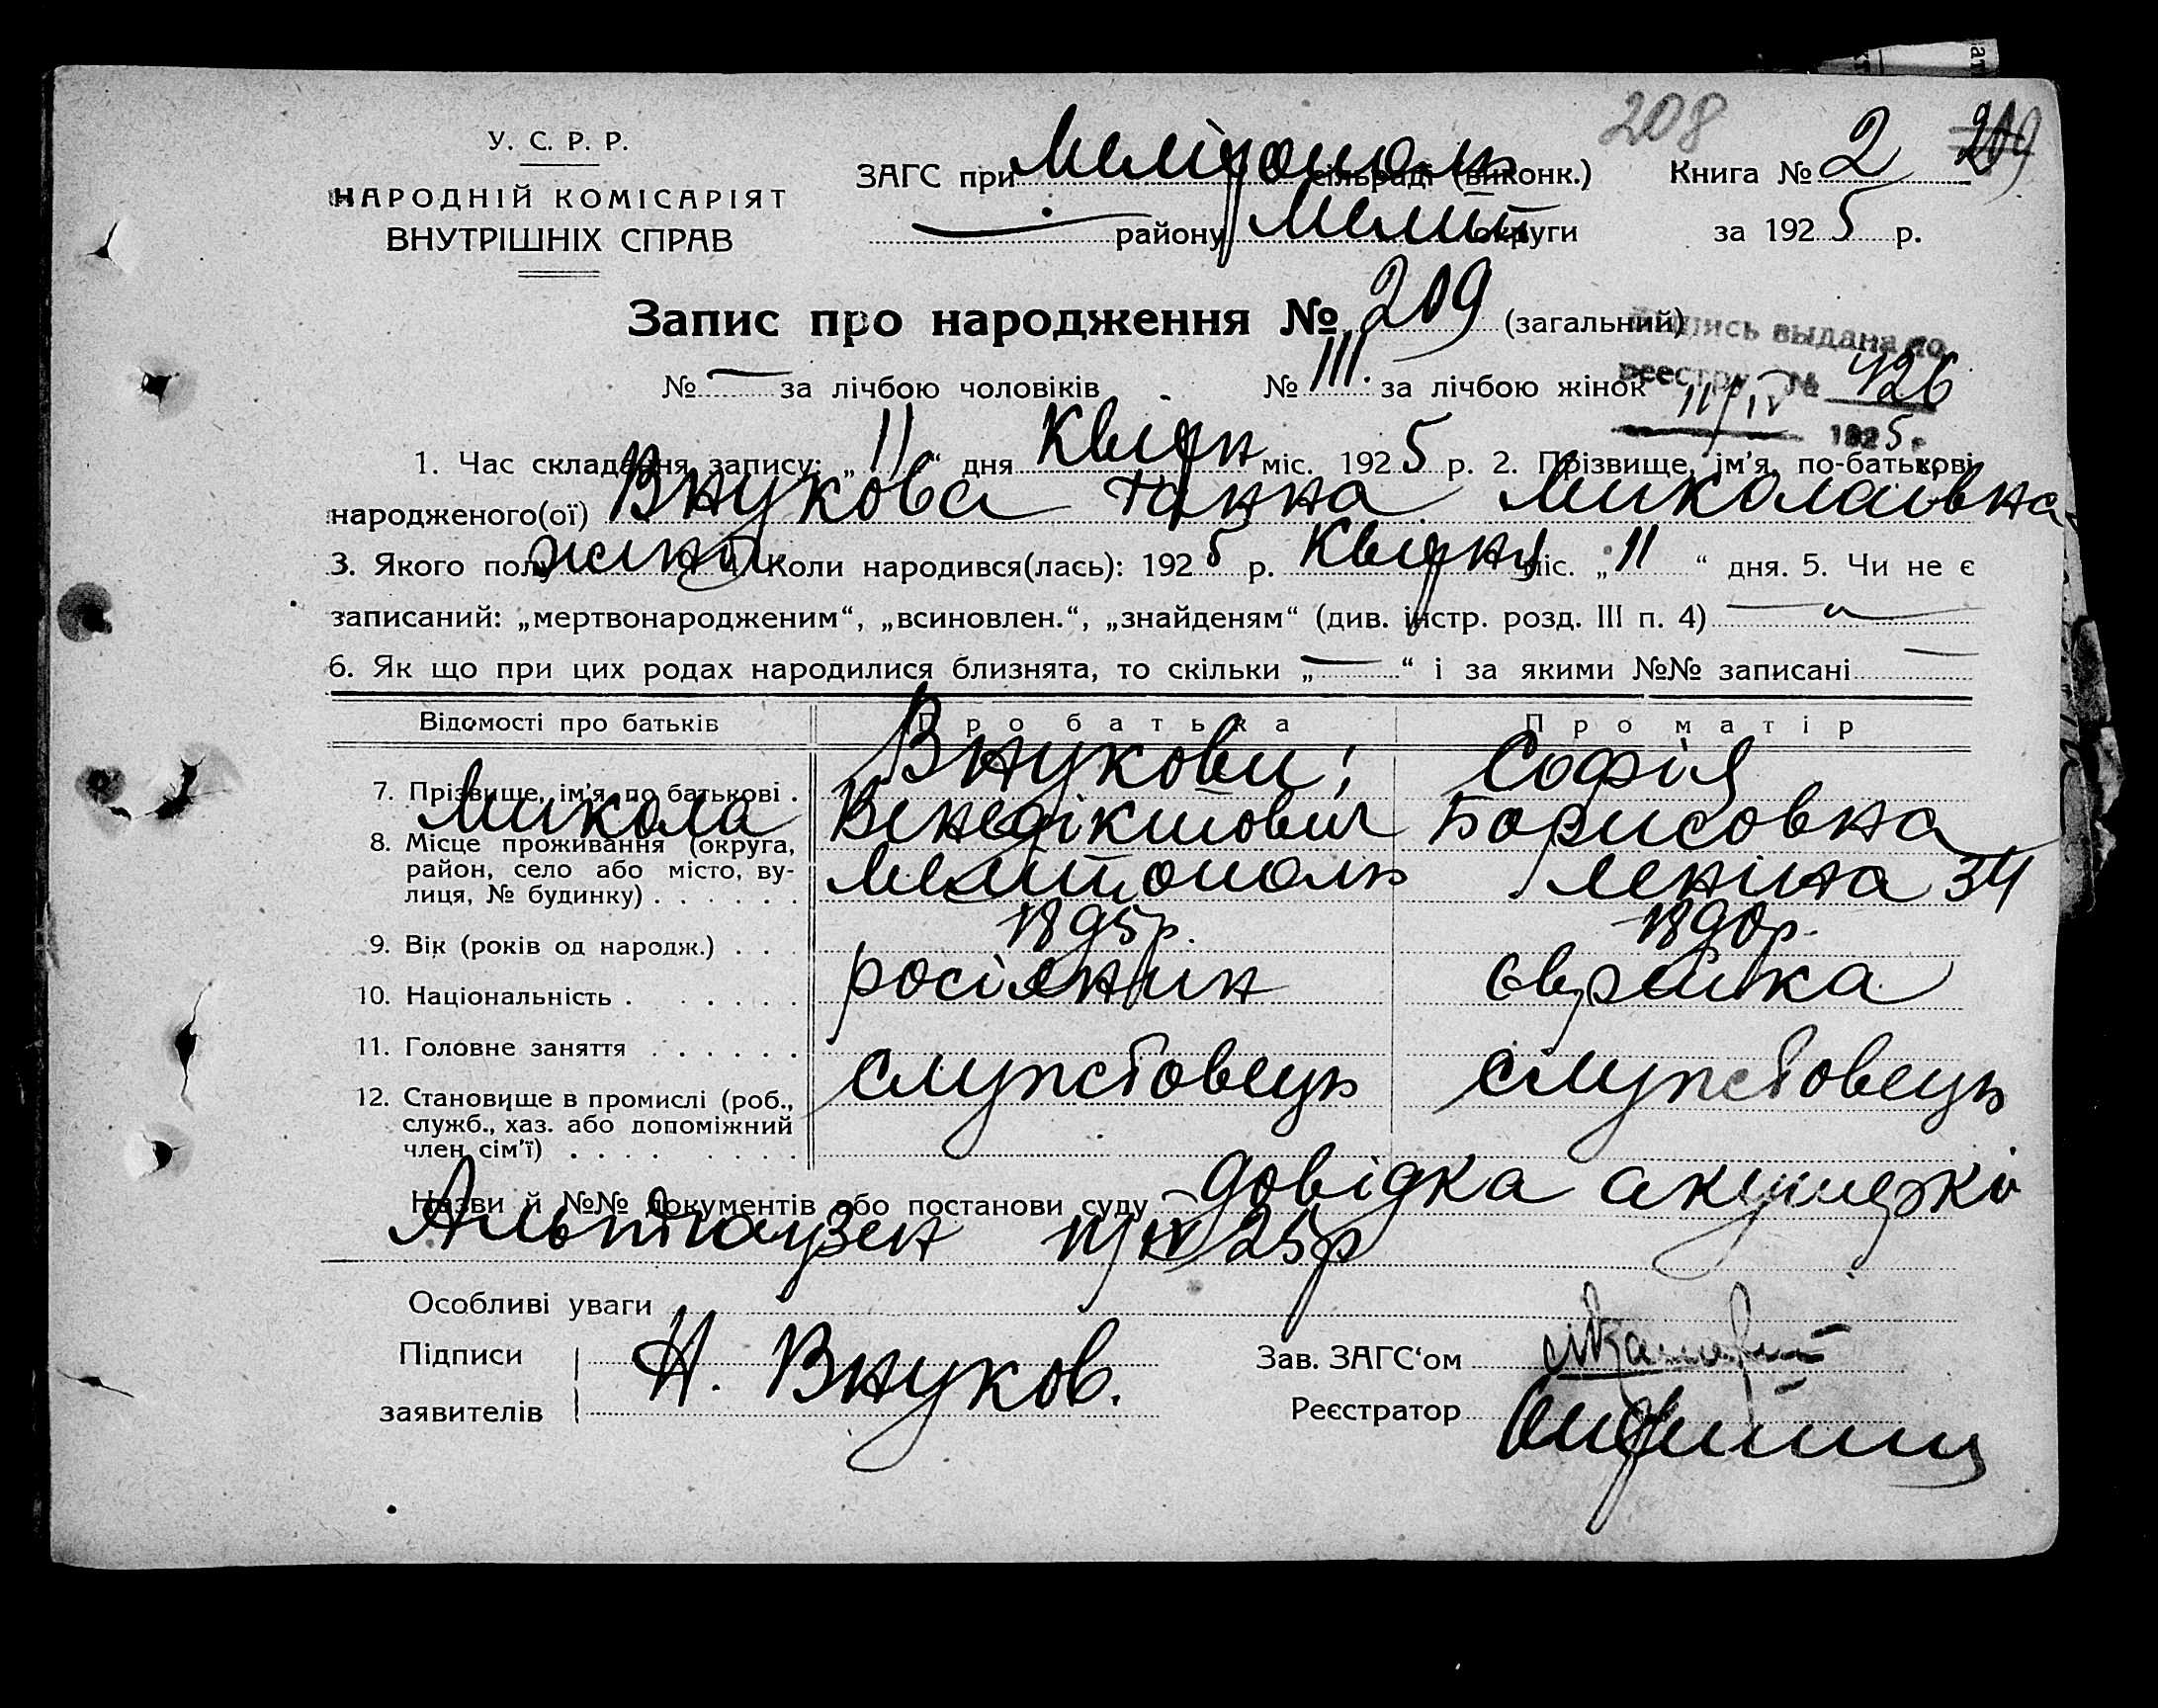 208
209
У. С. Р. Р.
НАРОДНІЙ КОМІСАРІЯТ
ВНУТРІШНІХ СПРАВ
ЗАГС при Мелітополь сільраді (виконк.) Книга № 2
— району Меліт округи за 1925 р.
Запис про народження № 209 (загальний)
№ — за лічбою чоловіків № 111. за лічбою жінок
выдана по
реестру № 426
11/IV 1925 г.
1. Час складання запису: „11“ дня Квітн міс. 1925 р. 2. Прізвище, ім'я, по-батькові
народженого(ої) Внукова Ганна Миколаівна
3. Якого полу жіноч 4. Коли народився(лась): 1925 р. Квітня міс. „11“ дня. 5. Чи не є
записаний: „мертвонародженим“, „всиновлен.“, „знайденям“ (див. інстр. розд. III п. 4) —
6. Як що при цих родах народилися близнята, то скільки „—“ і за якими №№ записані —
Відомості про батьків Про батька Про матір
7. Прізвище, ім'я по батькові . Внукови: Софія
Микола Венедіктович Борисовна
8. Місце проживання (округа, район, село або місто, вулиця, № будинку) . . . . . . Мелітополь Леніна 34
9. Вік (років од народж.) . . . 1895р. 1890р.
10. Національність . . . . . . росіянин єврейка
11. Головне заняття . . . . . .
службовець службовець
12. Становище в промислі (роб., служб., хаз. або допоміжний член сім'ї) . . . . . . . .
Назви й №№ документів або постанови суду довідка акушерки
Альтгаузен 11/IV 25р
Особливі уваги
Підписи
заявителів
Н. Внуков.
Зав. ЗАГС‘ом
Реєстратор